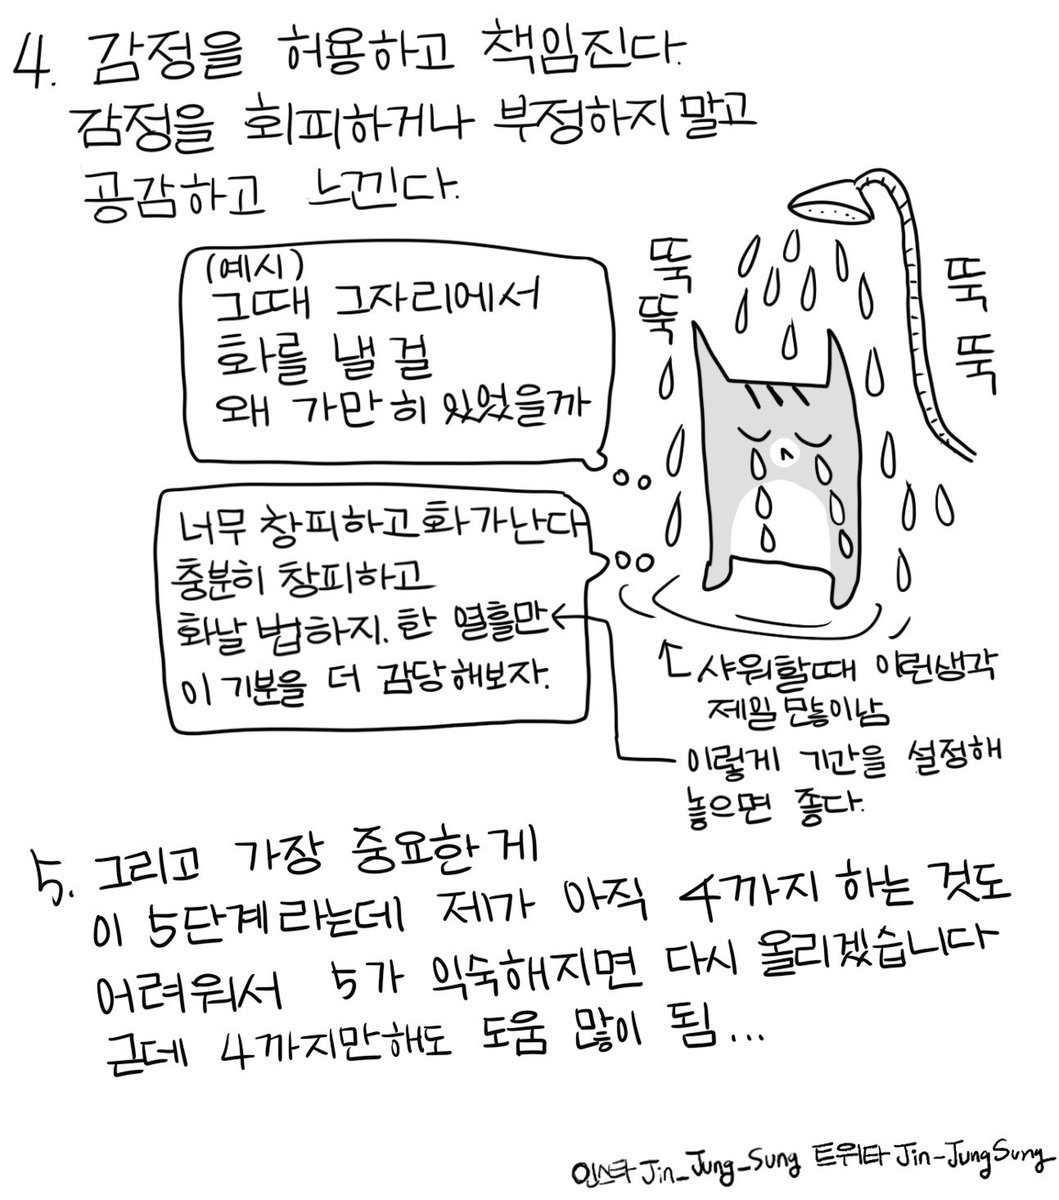 4. 감정을 허용하고 책임진다.
감정을 회피하거나 부정하지 말고
공감하고 느낀다.
(예시)
그때 그자리에서
화를 낼 걸
왜 가만히 있었을까
뚝
뚝
뚝
뚝
너무 창피하고 화가난다
충분히 창피하고
화날 법하지. 한 열흘만
이 기분을 더 감당해보자.
샤워할때 이런생각
제일 많이남
이렇게 기간을 설정해
놓으면 좋다.
5. 그리고 가장 중요한게
이 5단계라는데 제가 아직 4까지 하는 것도
어려워서 5가 익숙해지면 다시 올리겠습니다
근데 4까지만해도 도움 많이 됨...
인스타 Jin_Jung_Sung 트위타 Jin-JungSung